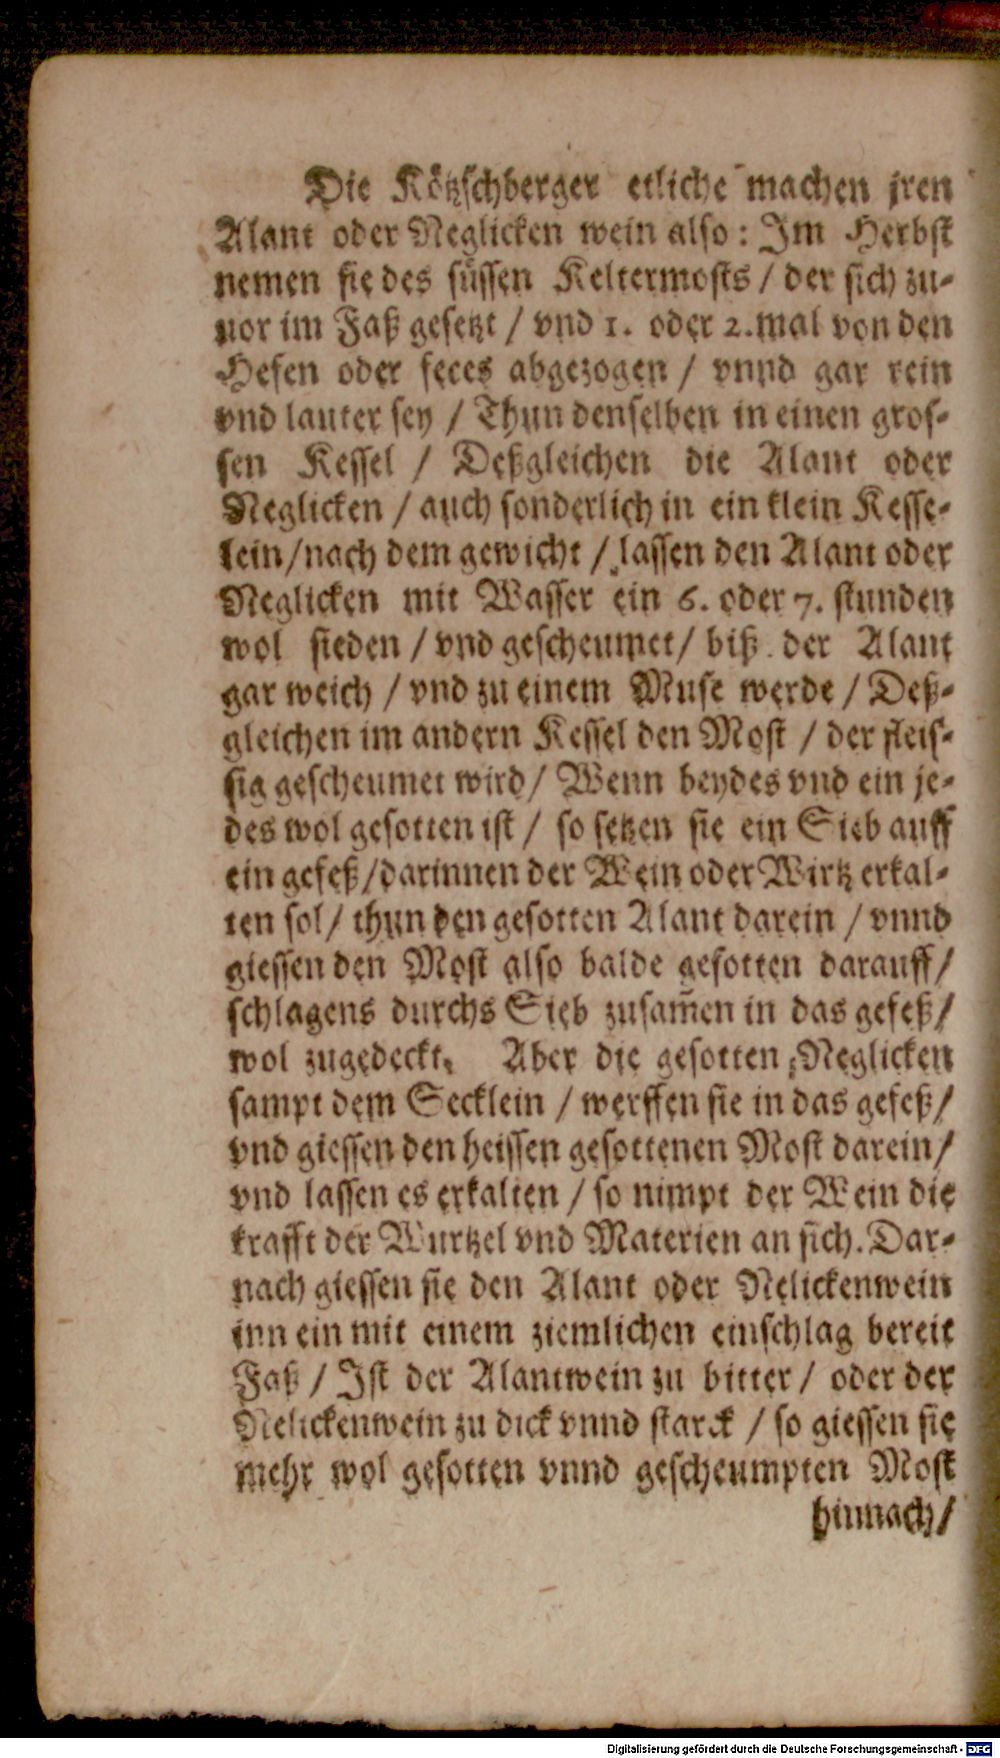 Die Kötzschberger etliche machen jren
Alant oder Neglicken wein also: Im Herbst
nemen sie des süssen Keltermosts / der sich zu-
uor im Faß gesetzt / vnd 1. oder 2. mal von den
Hefen oder feces abgezogen / vnnd gar rein
vnd lauter sey / Thun denselben in einen gros-
sen Kessel / Deßgleichen die Alant oder
Neglicken / auch sonderlich in ein klein Kesse-
lein / nach dem gewicht / lassen den Alant oder
Neglicken mit Wasser ein 6. oder 7. stunden
wol sieden / vnd gescheumet / biß der Alant
gar weich / vnd zu einem Muse werde / Deß-
gleichen im andern Kessel den Most / der fleis-
sig gescheumet wird / Wenn beydes vnd ein je-
des wol gesotten ist / so setzen sie ein Sieb auff
ein gefeß / darinnen der Wein oder Wirtz erkal-
ten sol / thun den gesotten Alant darein / vnnd
giessen den Most also balde gesotten darauff /
schlagens durchs Sieb zusam̄en in das gefeß /
wol zugedeckt. Aber die gesotten Neglicken
sampt dem Secklein / werffen sie in das gefeß /
vnd giessen den heissen gesottenen Most darein /
vnd lassen es erkalten / so nimpt der Wein die
krafft der Wurtzel vnd Materien an sich. Dar-
nach giessen sie den Alant oder Nelickenwein
inn ein mit einem ziemlichen einschlag bereit
Faß / Ist der Alantwein zu bitter / oder der
Nelickenwein zu dick vnnd starck / so giessen sie
mehr wol gesotten vnnd gescheumpten Most
hinnach /
Digitalisierung gefördert durch die Deutsche Forschungsgemeinschaft - DFG